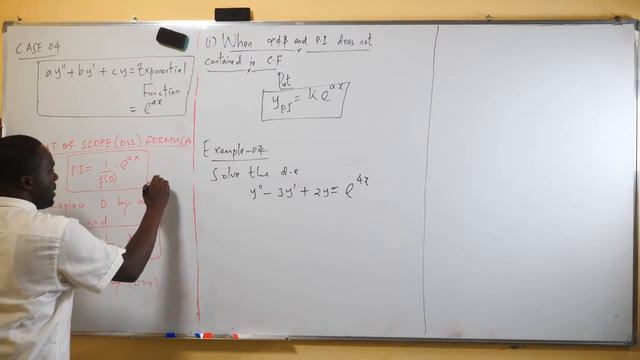 CASE 04
ay" + by' + cy = Exponential
Function
= e^{ax}
OF SCOPE (OSS) FORMULA
P.I = 1/f(D) . e^{ax}
Replace D by a
and
(i) When α≠β and P.I does not
contained in C.F.
Put
y_{PI} = k e^{ax}
Example-04.
Solve the d.e
y" - 3y' + 2y = e^{4x}